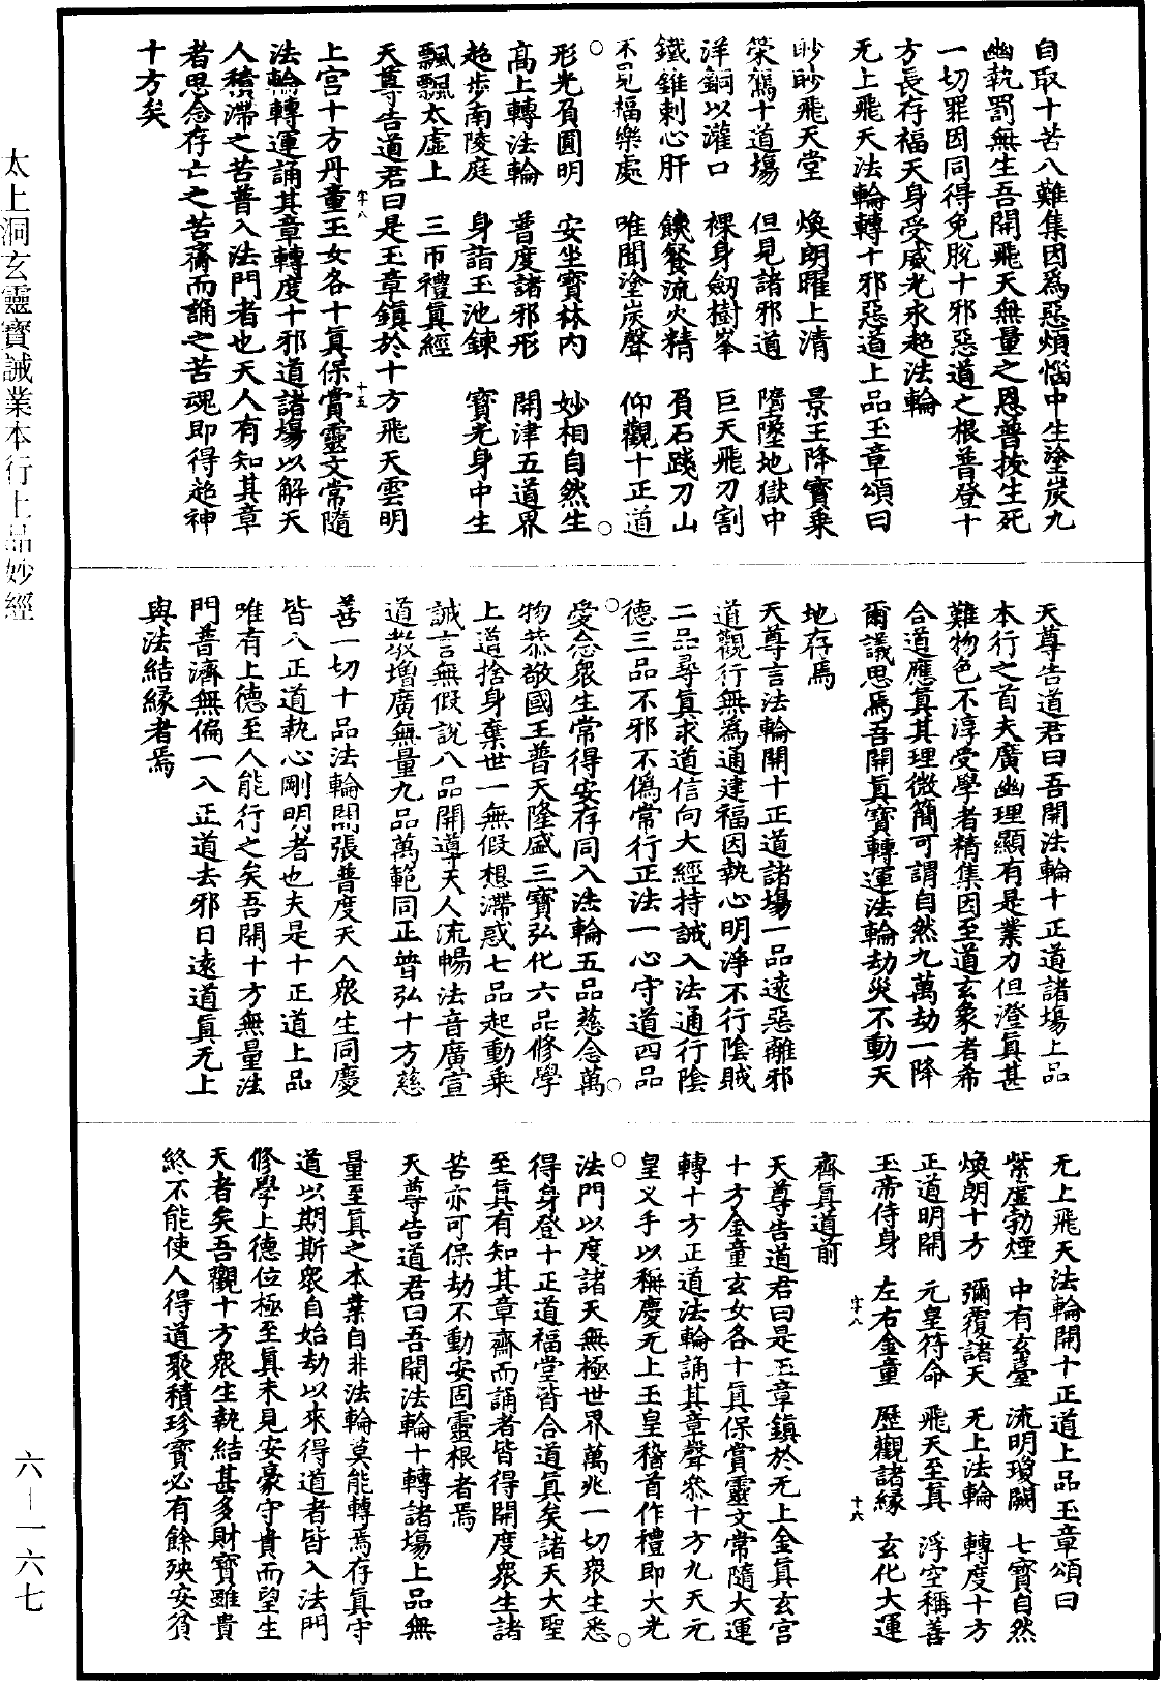 自取十苦八難集因爲惡煩惱中生塗炭九
幽執罰無生吾開飛天無量之恩普拔生死
一切罪因同得免脫十邪惡道之根普登十
方長存福天身受威光永起法輪
无上飛天法輪轉十邪惡道上品玉章頌曰
眇眇飛天堂　煥朗曜上清　景王降寶乗
榮駕十道場　但見諸邪道　隋墜地獄中
洋銅以灌口　裸身劔樹峯　巨天飛刀割
鐵錐刺心肝　饑餐流火精　負石踐刀山
不見福樂處　唯聞塗炭聲　仰觀十正道
形光負圓明　安坐寶林内　妙相自然生
高上轉法輪　普度諸邪形　開津五道界
起步南陵庭　身詣玉池鍊　寶光身中生
飄飄太虛上　三帀禮真經
天尊告道君曰是玉章鎮於十方飛天雲明
字八　十五
上宫十方丹童玉女各十真保賞靈文常隨
法輪轉運誦其章轉度十邪道諸場以解天
人積滯之苦普入法門者也天人有知其章
者思念存亡之苦齋而誦之苦魂即得起神
十方矣
天尊告道君曰吾開法輪十正道諸場上品
本行之首夫廣幽理顯有是業力但澄真甚
難物色不淳受學者精集因至道玄象者希
合道應真其理微簡可謂自然九萬劫一降
爾議思焉吾開真寶轉運法輪劫災不動天
地存焉
天尊言法輪開十正道諸場一品遠惡離邪
道觀行無為通建福因執心明淨不行陰賊
二品尋真求道信向大經持誡入法通行陰
德三品不邪不僞常行正法一心守道四品
愛念衆生常得安存同入法輪五品慈念萬
物恭敬國王普天隆盛三寶弘化六品修學
上道捨身棄世一無假想滯惑七品起動乗
誠言無假說八品開導天人流暢法音廣宣
道教增廣無量九品萬範同正普弘十方慈
善一切十品法輪開張普度天人衆生同慶
皆入正道執心剛明者也夫是十正道上品
唯有上德至人能行之矣吾開十方無量法
門普濟無偏一入正道去邪日遠道真无上
與法結緣者焉
无上飛天法輪開十正道上品玉章頌曰
紫虛勃煙　中有玄臺　流明瓊闕　七寶自然
煥朗十方　彌覆諸天　无上法輪　轉度十方
正道明開　元皇符命　飛天至真　浮空稱善
玉帝侍身　左右金童　歷觀諸緣　玄化大運
字八　十六
齊真道前
天尊告道君曰是玉章鎮於无上金真玄宫
十方金童玄女各十真保賞靈文常隨大運
轉十方正道法輪誦其章聲參十方九天元
皇义手以稱慶无上玉皇稽首作禮即大光
法門以度諸天無極世界萬兆一切衆生悉
得身登十正道福堂皆合道真矣諸天大聖
至真有知其章齋而誦者皆得開度衆生諸
苦亦可保劫不動安固靈根者焉
天尊告道君曰吾開法輪十轉諸場上品無
量至真之本業自非法輪莫能轉焉存真守
道以期斯衆自始劫以來得道者皆入法門
修學上德位極至真未見安豪守貴而望生
天者矣吾觀十方衆生執結甚多財寶雖貴
終不能使人得道聚積珍寶必有餘殃安貧
太上洞玄靈寶誡業本行上品妙經
六—一六七